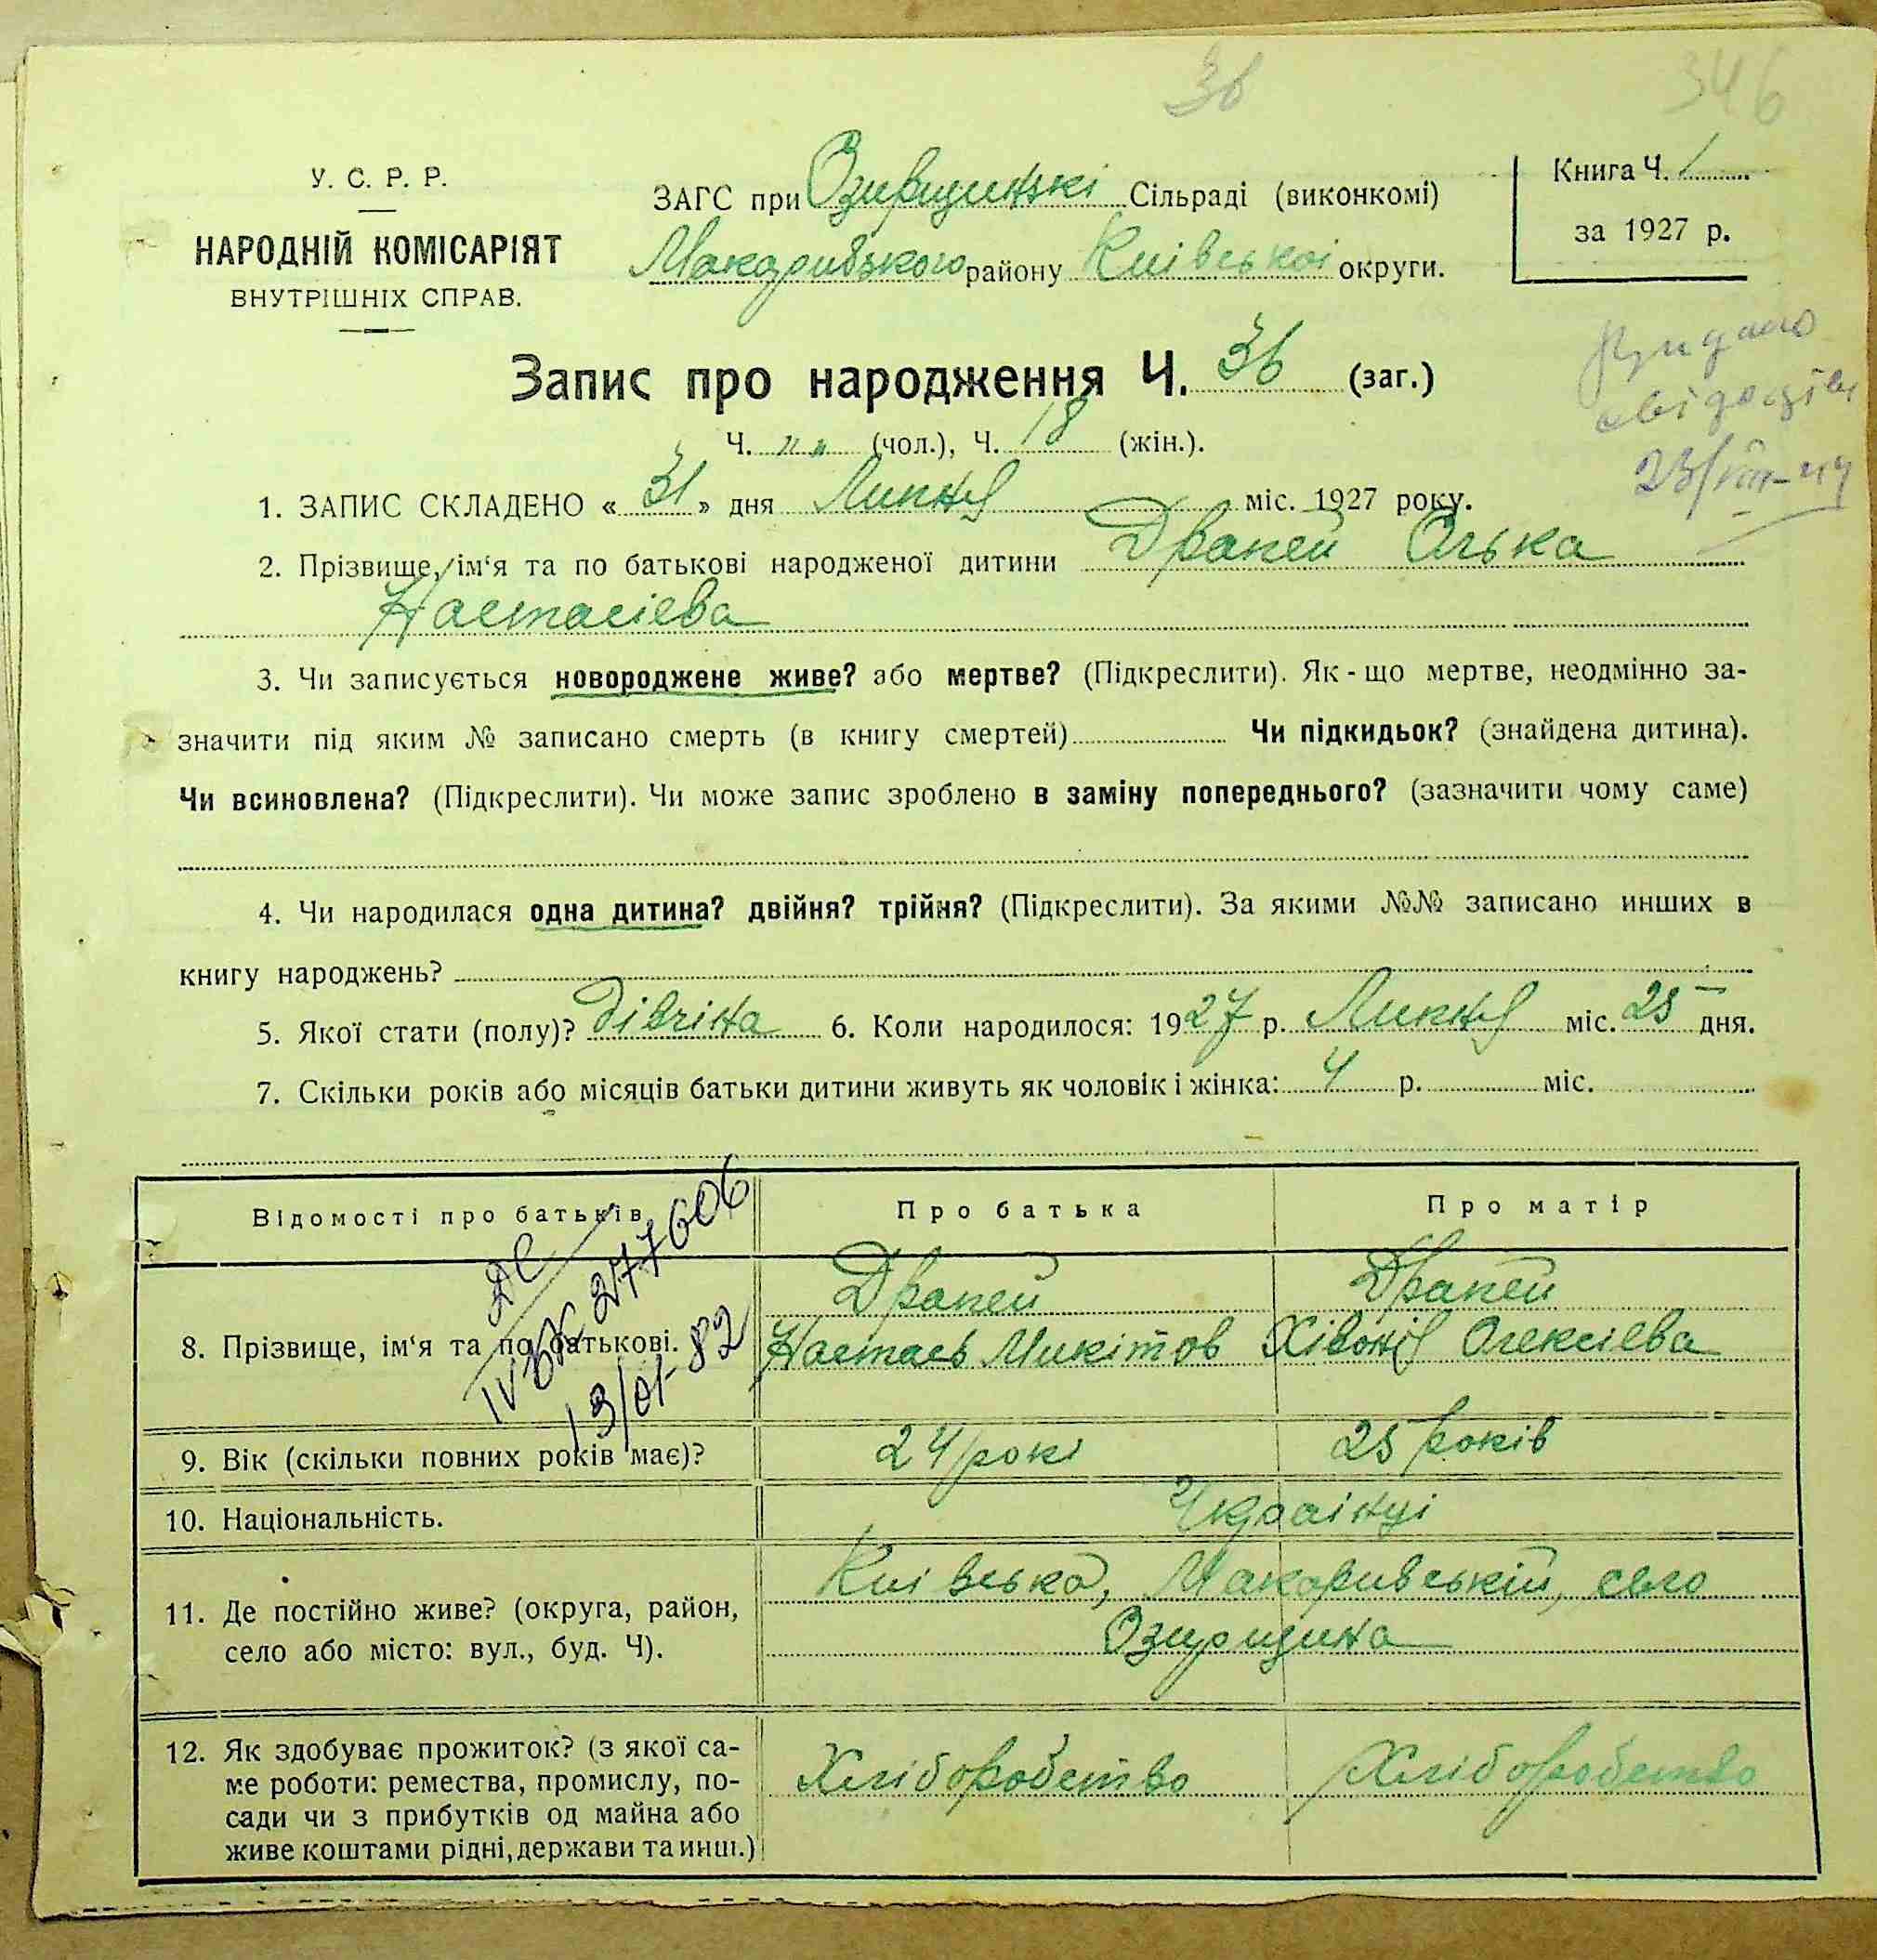 36
346
У. С. Р. Р.
НАРОДНІЙ КОМІСАРІЯТ
ВНУТРІШНІХ СПРАВ.
ЗАГС при Озирщинські Сільраді (виконкомі)
Макарівського району Київської округи.
Книга Ч. 1
за 1927 р.
Запис про народження Ч. 36 (заг.)
Ч. „ „ (чол.), Ч. 18 (жін.).
Видано
23/VIII-44
1. ЗАПИС СКЛАДЕНО « 31 » дня Липня міс. 1927 року.
2. Прізвище, ім‘я та по батькові народженої дитини Драпей Олька
Настасієва
3. Чи записується новороджене живе? або мертве? (Підкреслити). Як - що мертве, неодмінно за-
значити під яким № записано смерть (в книгу смертей) Чи підкидьок? (знайдена дитина).
Чи всиновлена? (Підкреслити). Чи може запис зроблено в заміну попереднього? (зазначити чому саме)
4. Чи народилася одна дитина? двійня? трійня? (Підкреслити). За якими №№ записано инших в
книгу народжень?
5. Якої стати (полу)? дівчіна 6. Коли народилося: 1927 р. Липня міс. 25 дня.
7. Скільки років або місяців батьки дитини живуть як чоловік і жінка: 4 р. міс.
Відомості про батьків Про батька Про матір
IV БК 277606
13/01-82
Драпей Драпей
8. Прізвище, ім‘я та по батькові. Настась Микітов Хівонія Олексієва
9. Вік (скільки повних років має)? 24 рокі 25 років
10. Національність. Українці
Київська, Макарівській, село
11. Де постійно живе? (округа, район,
село або місто: вул., буд. Ч). Озирщина
12. Як здобуває прожиток? (з якої са-
ме роботи: ремества, промислу, по- Хліборобство Хліборобство
сади чи з прибутків од майна або
живе коштами рідні, держави та инш.)